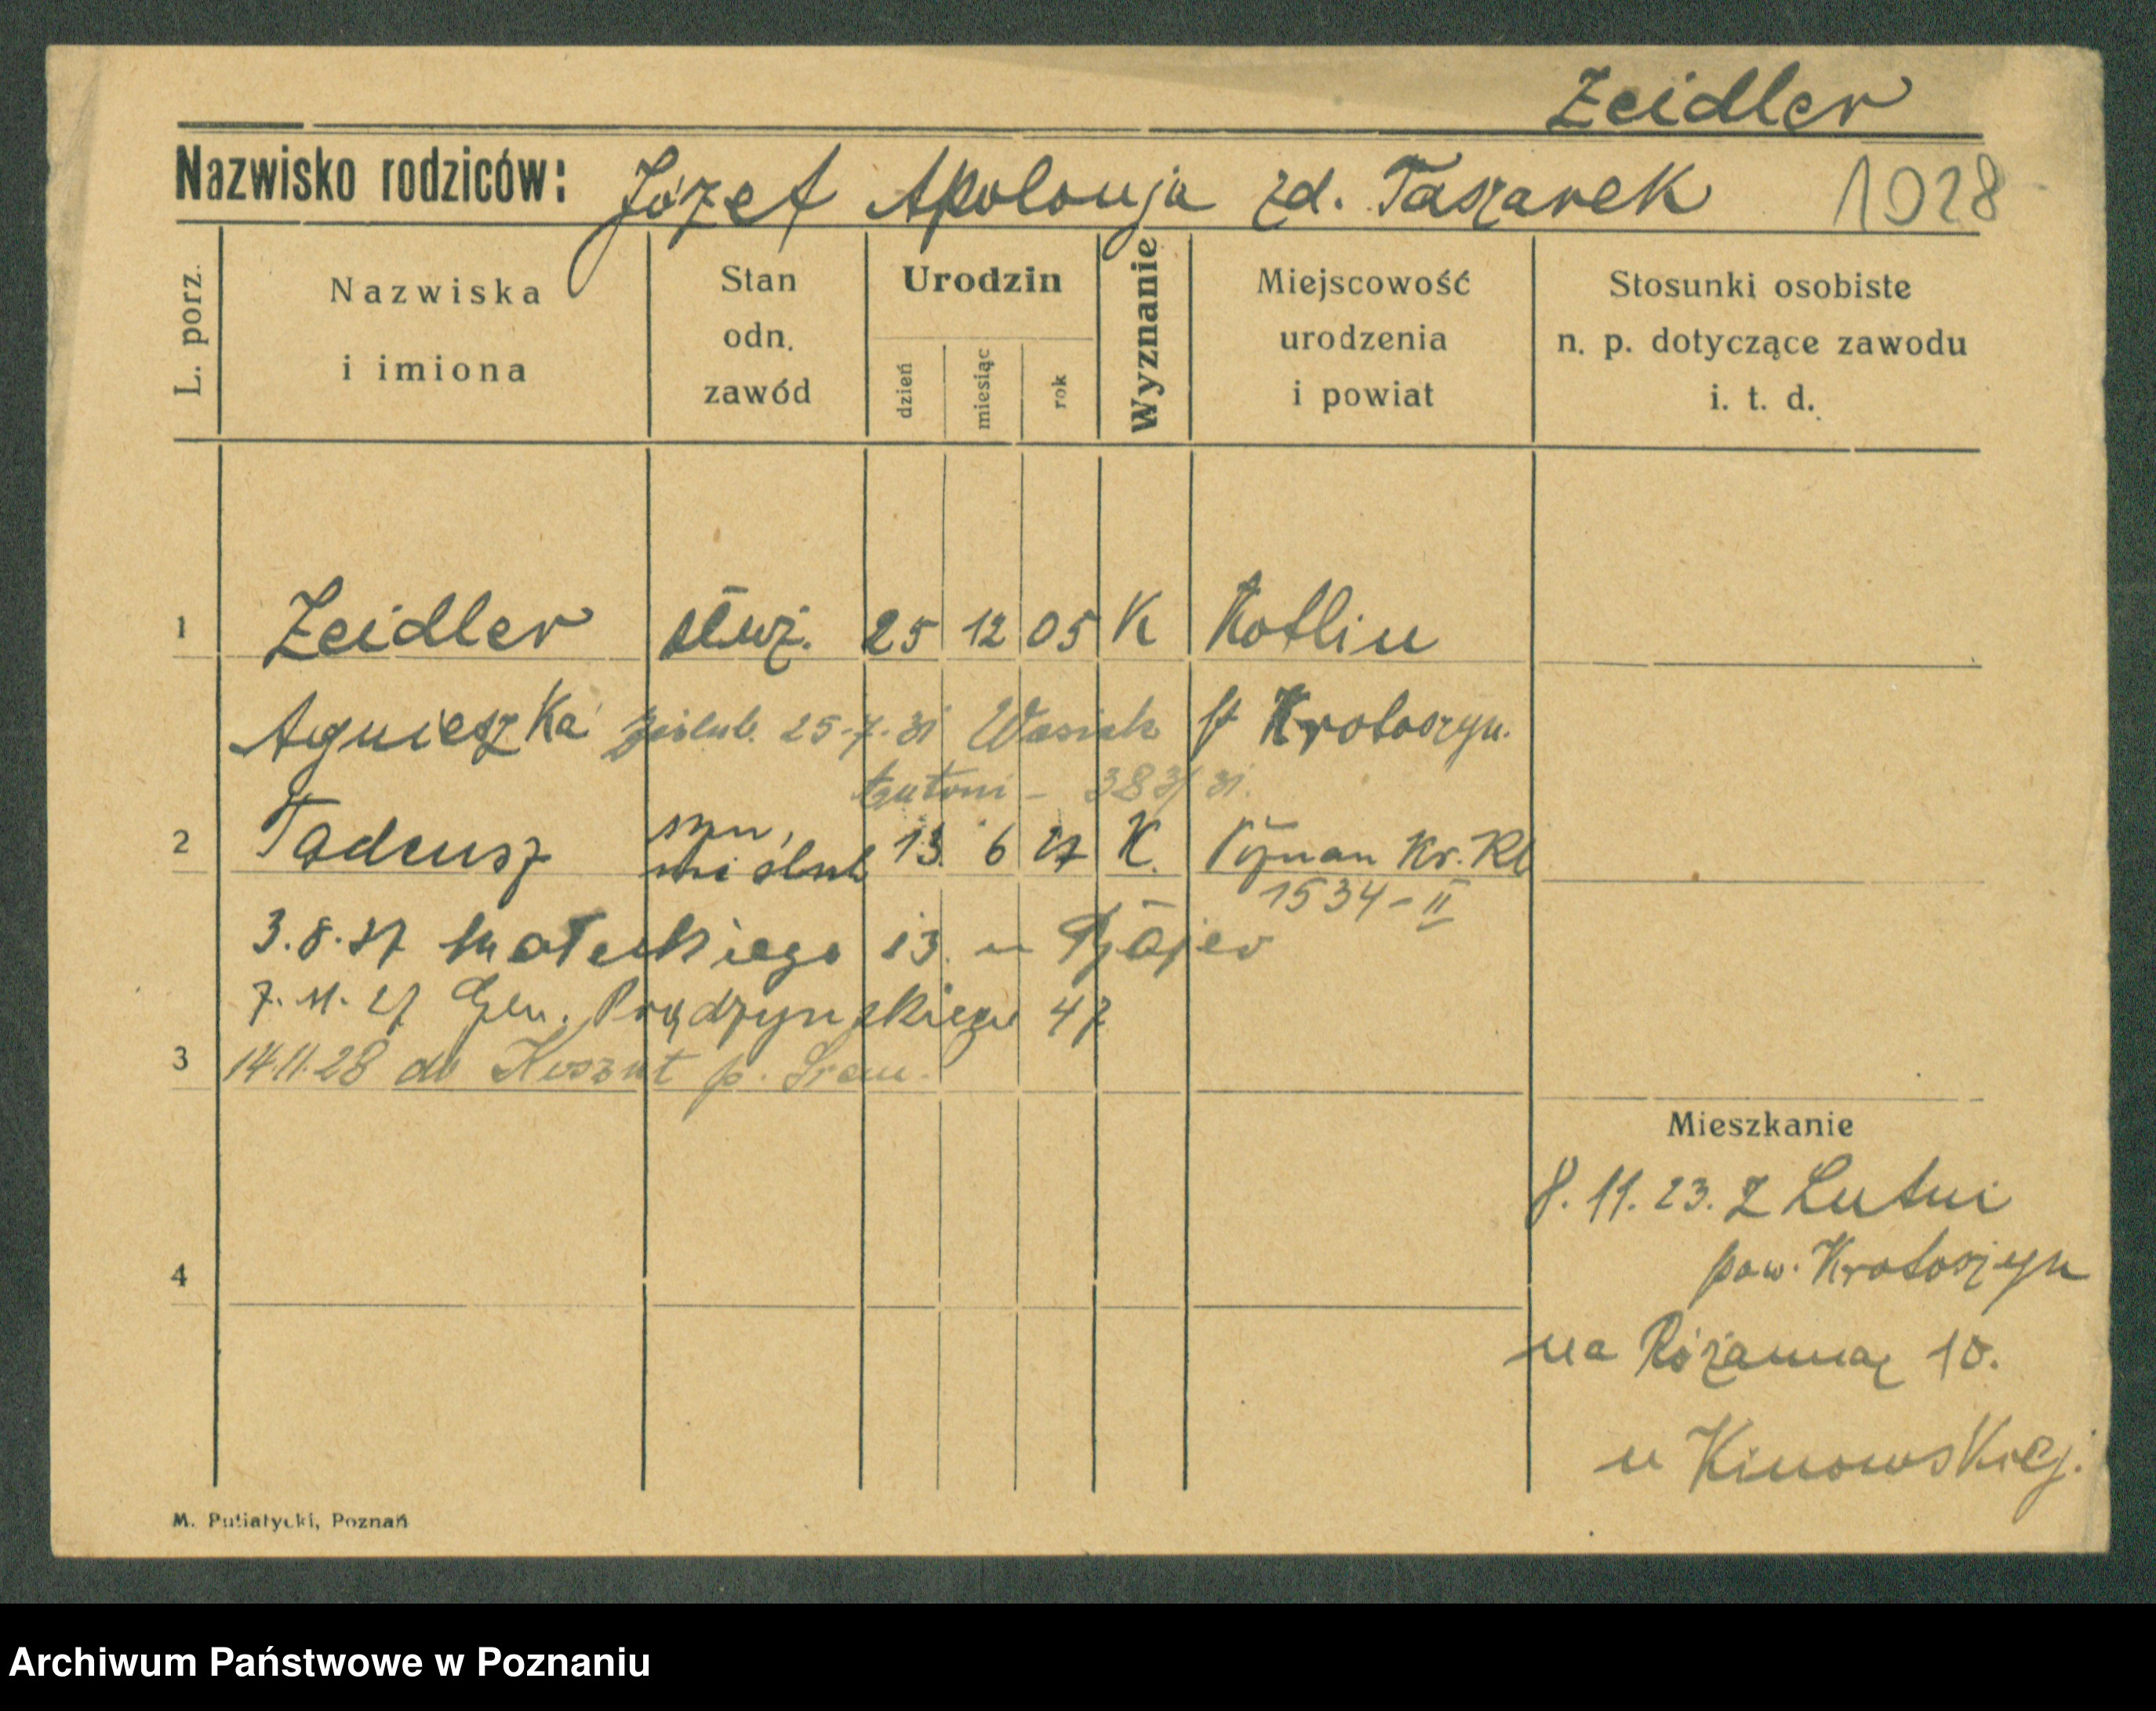 Zeidler
Nazwisko rodziców: Józef Apolonja zd. Taszarek 1928
L. porz. Nazwiska i imiona Stan odn. zawód Urodzin dzień miesiąc rok Wyznanie Miejscowość urodzenia i powiat Stosunki osobiste n. p. dotyczące zawodu i. t. d.
1 Zeidler służ. 25 12 05 K Kotlin
Agnieszka 25.7.31 Wasiak Krotoszyn.
Antoni – 383/31.
2 Tadeusz syn, nieślub 13. 6 27 K. Poznan
1534-II
3.8.27 Małeckiego 13.
7.11.27 Gen. Prądzynskiego 47
3 14.11.28 do Koszut p. Śrem.
Mieszkanie
8.11.23. z Lutni
pow. Krotoszyn
4
na Różanną 10.
u Kinowskiej.
M. Putiatycki, Poznań
Archiwum Państwowe w Poznaniu